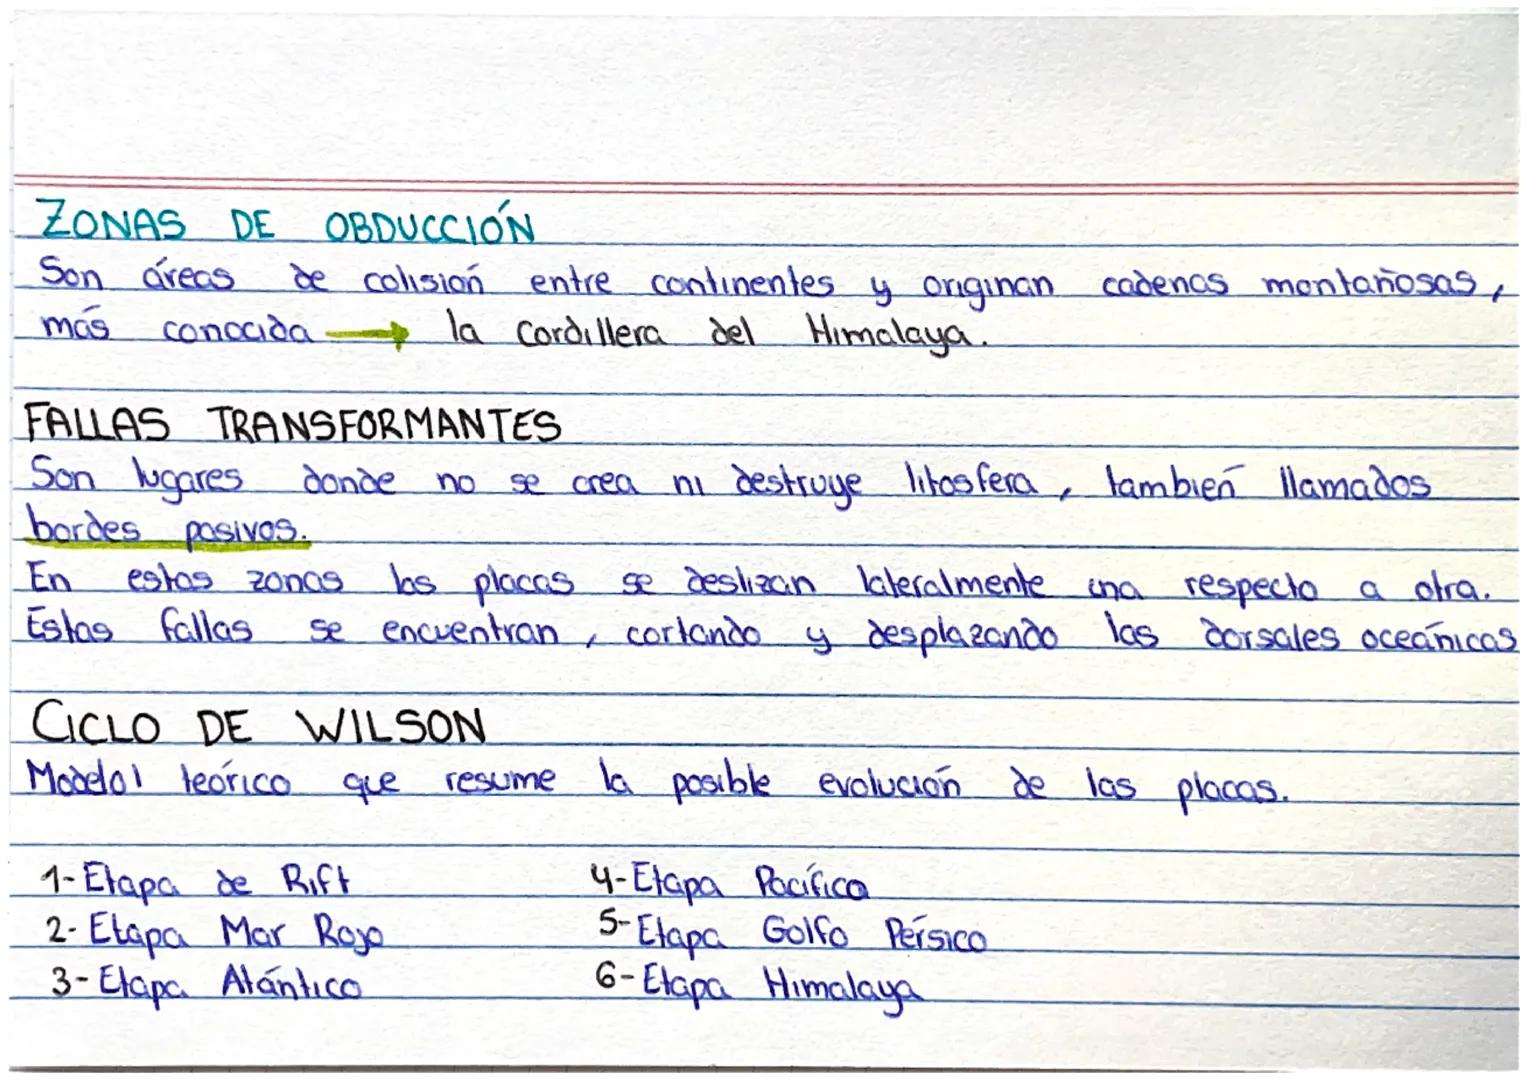 ZONAS DE OBDUCCIÓN
Son áreas de colisión entre continentes y originan cadenas montañosas,
más conocida → la Cordillera del Himalaya.
FALLAS TRANSFORMANTES
Son lugares donde no se crea ni destruye litosfera, también llamados
bordes pasivos.
En estas zonas las placas se deslizan lateralmente una respecto a otra.
Estas fallas se encuentran, cortando y desplazando las dorsales oceánicas
CICLO DE WILSON
Modelo1 teórico que resume la posible evolución de las placas.
1-Etapa de Rift
2-Etapa Mar Rojo
3-Etapa Atántico
4-Etapa Pacífica
5-Etapa Golfo Pérsico
6-Etapa Himalaya